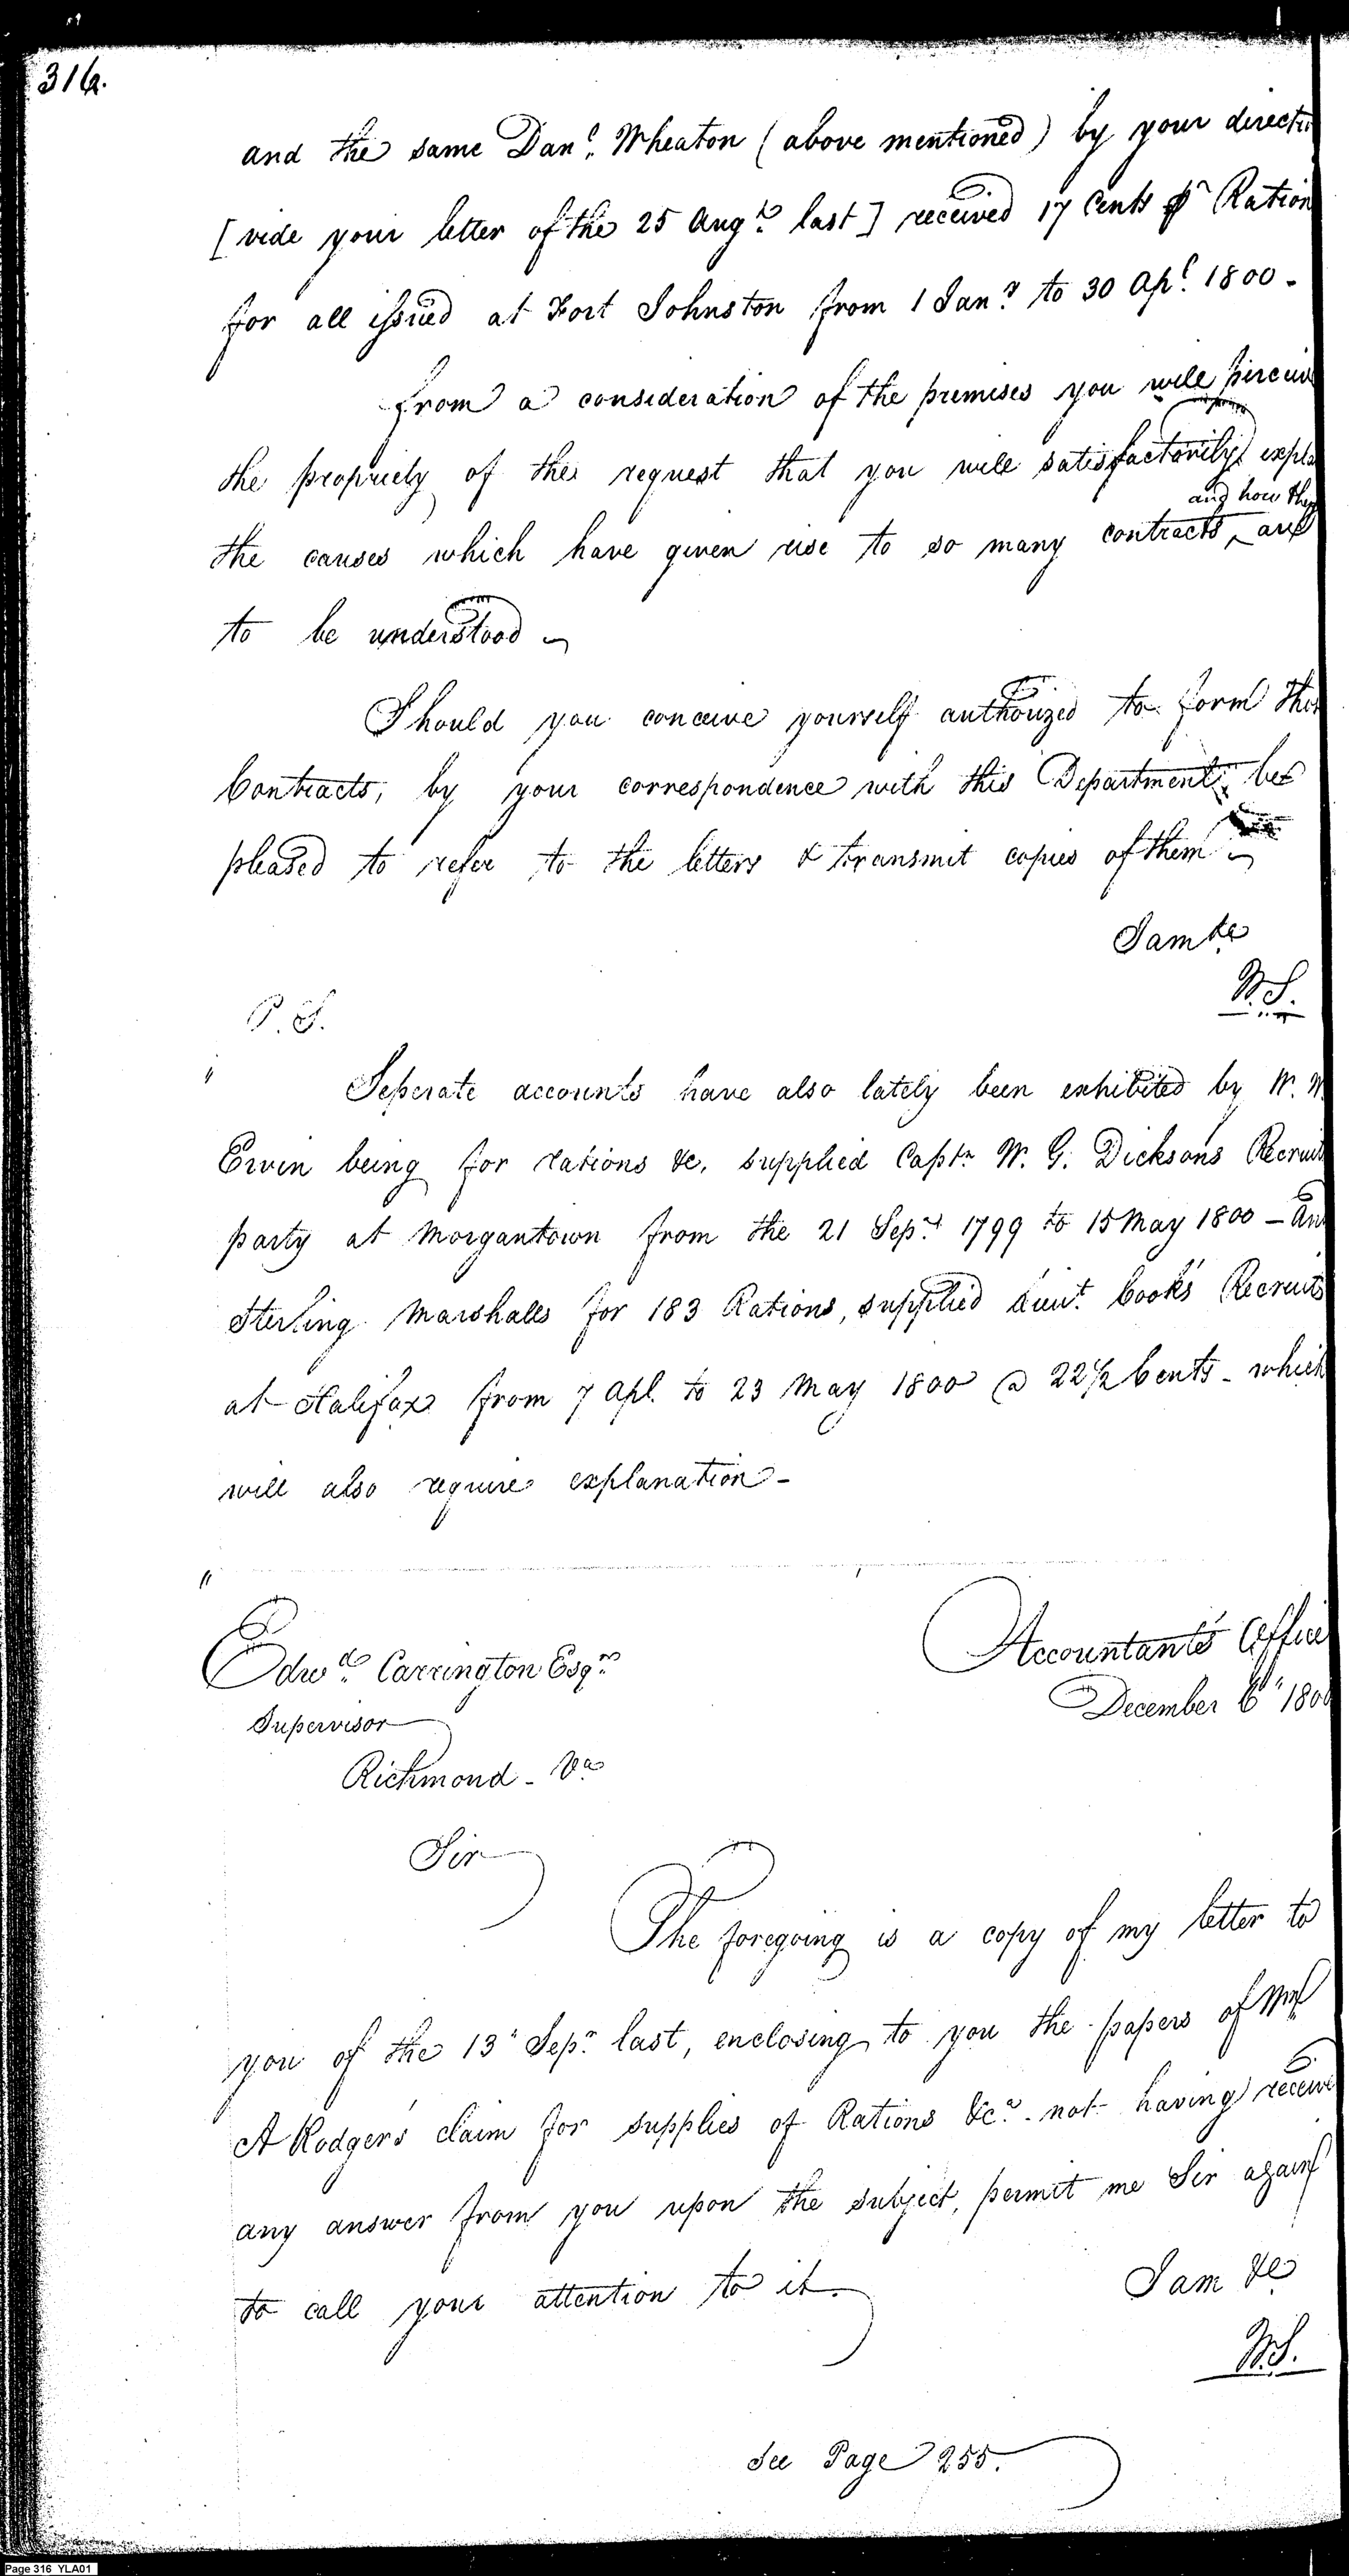 316.
and the same Danl. Wheaton (above mentioned) by your directi
[vide your letter of the 25 Augt. last] received 17 Cents pr Ration
for all issued at Fort Johnston from 1 Jany. to 30 Apl. 1800 -
from a consideration of the premises you will perceive
the propriety of the request that you will satisfactorily expla
and how they
the causes which have given rise to so many contracts, ^ are
to be understood ~
Should you conceive yourself authorized to form these
Contracts, by your correspondence with this Department, be
pleased to refer to the letters & transmit copies of them ~
I am &c
W.S.
P. S.
" Seperate accounts have also lately been exhibited by W. W.
Erwin being for rations &c. supplied Captn W. G. Dicksons Recruit
party at Morgantown from the 21 Sept. 1799 to 15 May 1800 - An
Sterling Marshalls for 183 Rations, supplied Lieut. Cook's Recruits
at Halifax from 7 Apl. to 23 May 1800 @ 22 1/2 Cents - which
will also require explanation -
"
Edwd. Carrington Esqr.
Accountant's Office
Supervisor
December 6" 1800
Richmond - Va
Sir
The foregoing is a copy of my letter to
you of the 13" Sepr. last, enclosing to you the papers of
A Rodger's claim for supplies of Rations &c. - not having receive
any answer from you upon the subject, permit me Sir again
to call your attention to it.
I am &c
W.S.
See Page 255.
Page 316 YLA01